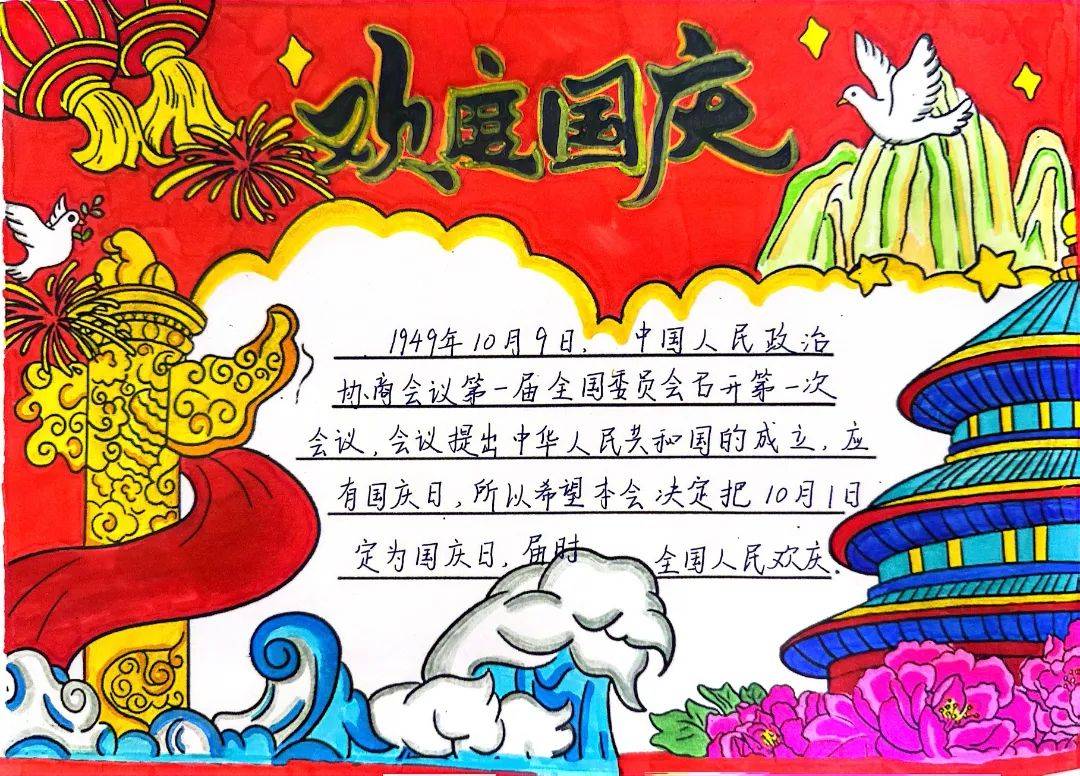 欢度国庆
1949年10月9日，中国人民政治
协商会议第一届全国委员会召开第一次
会议，会议提出中华人民共和国的成立，应
有国庆日，所以希望本会决定把10月1日
定为国庆日，届时 全国人民欢庆.